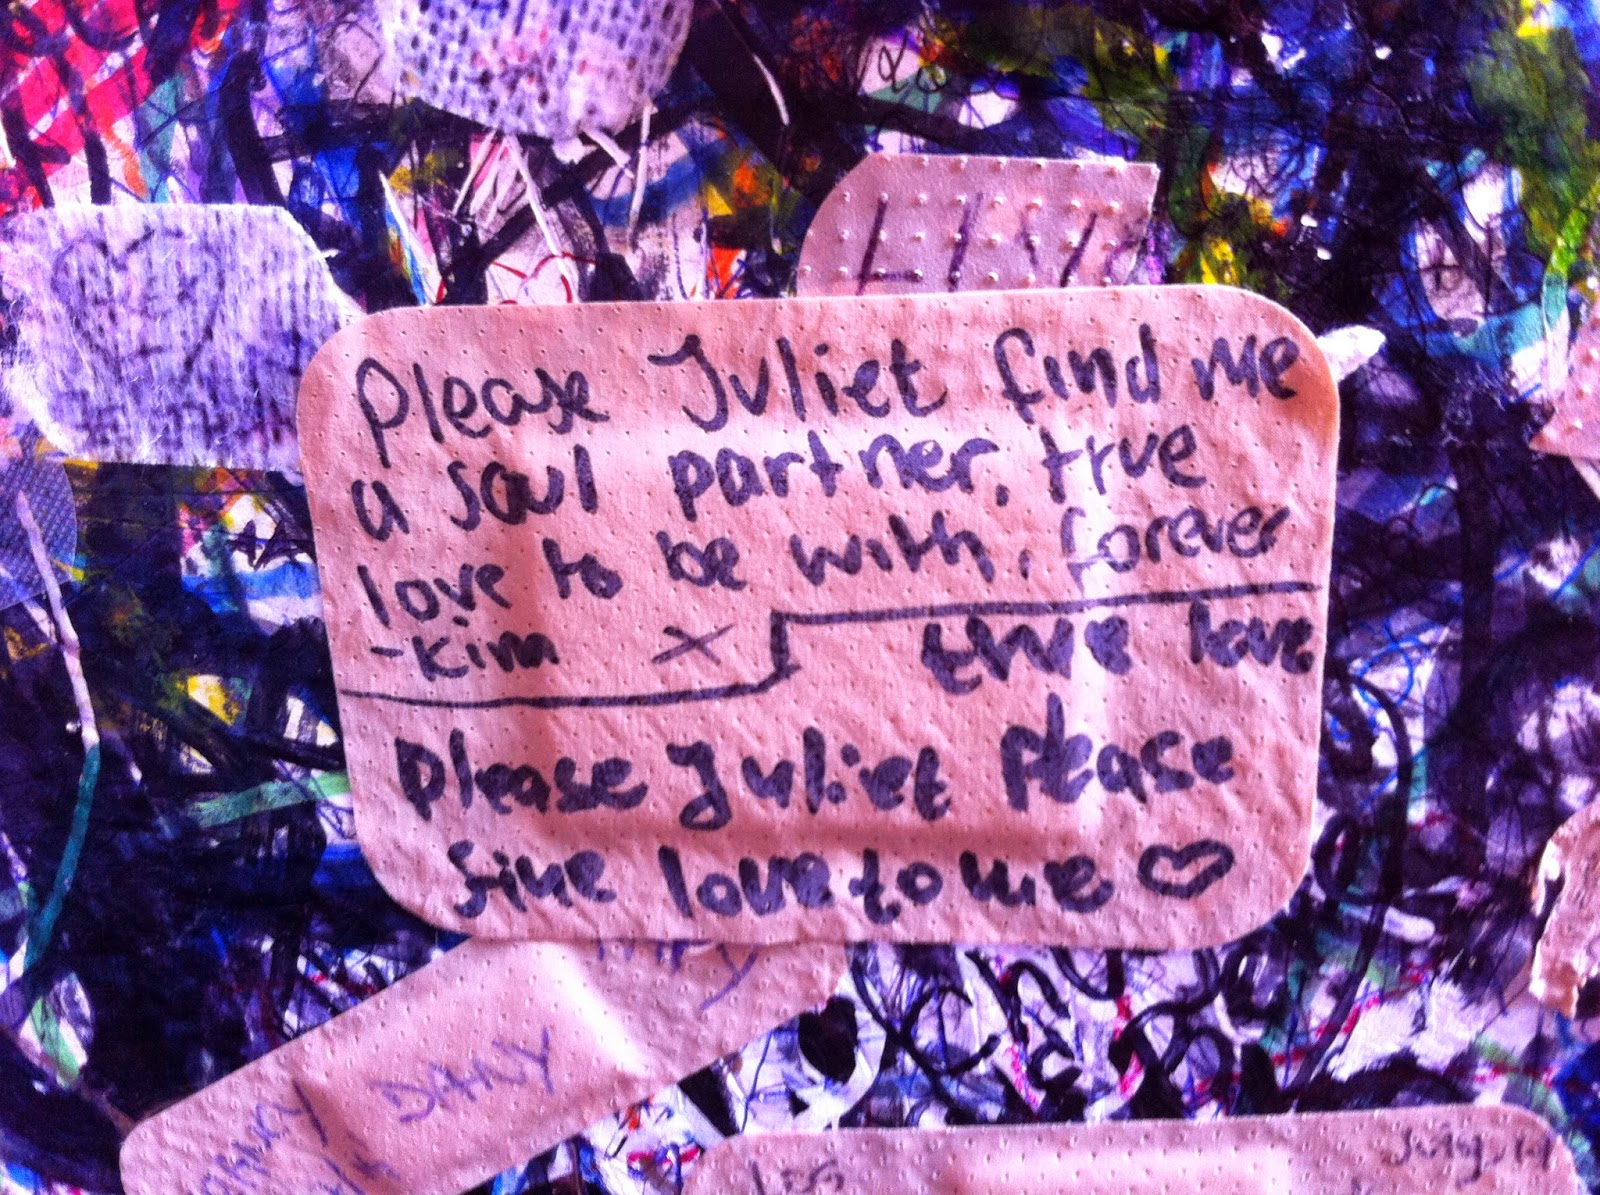 Please Juliet find me
a soul partner, true
love to be with, forever
-Kim X
true love
Please Juliet Please
give love to me ♡
DANY